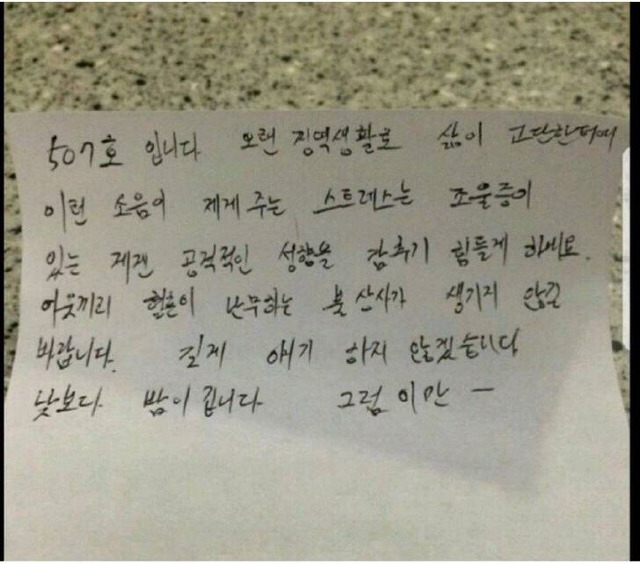 507호 입니다 오랜 징역생활로 삶이 고단한터에
이런 소음이 제게 주는 스트레스는 조울증이
있는 제겐 공격적인 성향을 감추기 힘들게 하네요.
이웃끼리 혈흔이 난무하는 불상사가 생기지 않길
바랍니다. 길게 얘기 하지 않겠습니다
낮보다 밤이 깁니다 그럼 이만 ㅡ